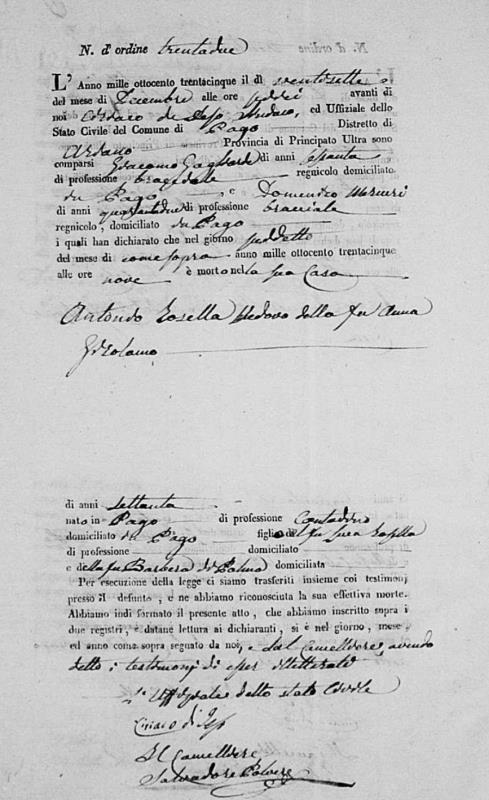 N. d'ordine trentadue
L'Anno mille ottocento trentacinque il dì ventisette
del mese di Decembre alle ore sedici avanti di
noi Ciriaco di Jeso Sindaco, ed Uffiziale dello
Stato Civile del Comune di Pago Distretto di
Ariano Provincia di Principato Ultra sono
comparsi Giacomo di anni ottanta
di professione regnicolo domiciliato
in Pago e Domenico Mercuri
di anni quarantadue di professione bracciale
regnicolo, domiciliato in Pago
i quali han dichiarato che nel giorno suddetto
del mese di come sopra anno mille ottocento trentacinque
alle ore nove è morto nella sua Casa
Antonio Iosella Vedovo della fu Anna
Girolamo
di anni settanta
nato in Pago di professione Contadino
domiciliato in Pago figlio del fu Iosella
di professione domiciliato
e della fu Barbera di Palma domiciliata
Per esecuzione della legge ci siamo trasferiti insieme coi testimonj
presso il defunto, e ne abbiamo riconosciuta la sua effettiva morte.
Abbiamo indi formato il presente atto, che abbiamo inscritto sopra i
due registri, e datane lettura ai dichiaranti, si è nel giorno, mese,
ed anno come sopra segnato da noi, e dal Cancelliere, avendo
detto i testimonj di esser illetterati
L'Uffiziale dello stato Civile
Ciriaco di Jeso
Il Cancelliere
Salvadore Polvere